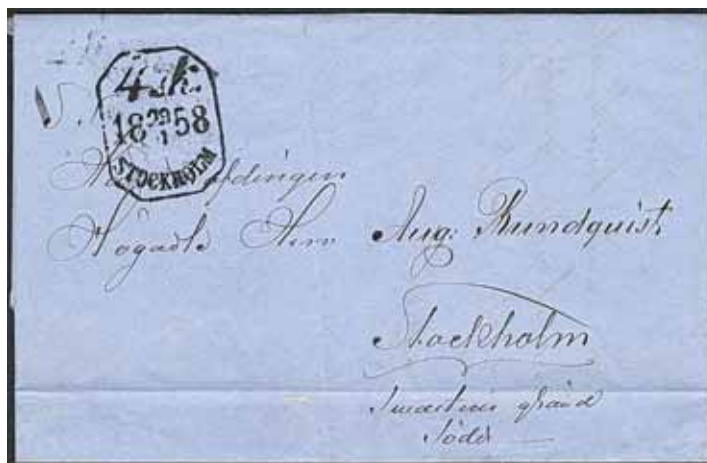 4 sk.
18 29/1 58
STOCKHOLM
Högädle Herr Aug: Rundquist.
Stockholm
gränd
Söder